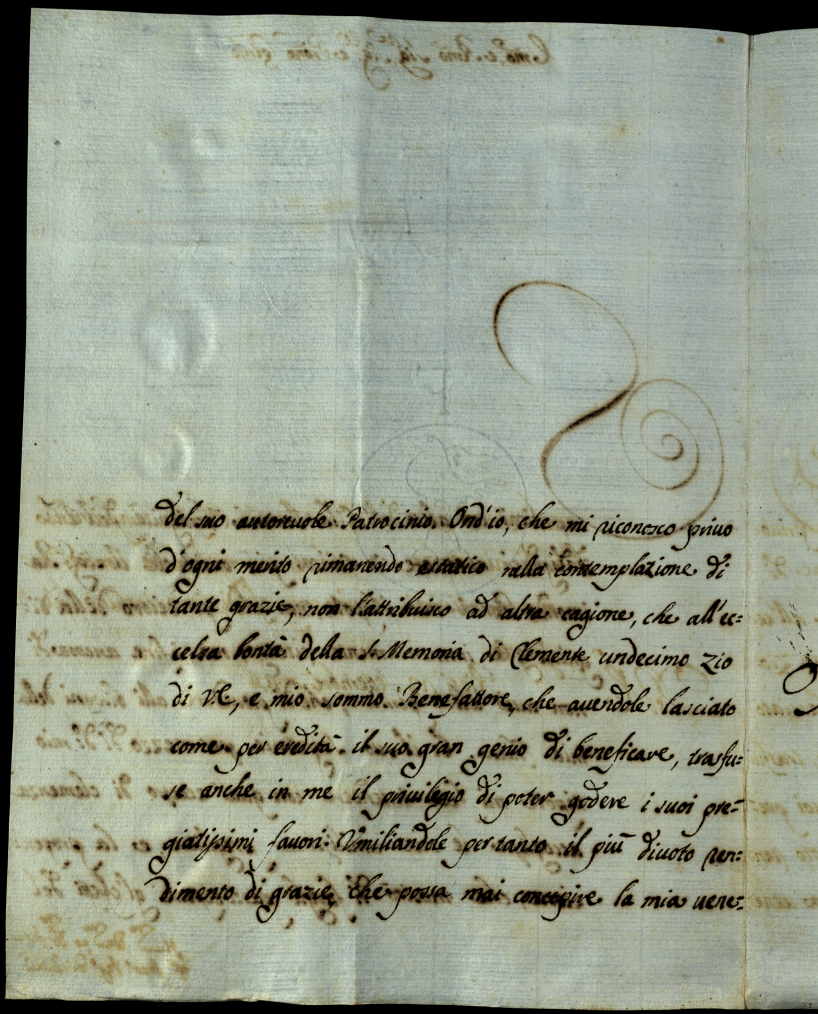 del suo autoreuole Patrocinio. Ond'io, che mi riconosco priuo
d'ogni merito rimanendo estatico nella contemplazione di
tante grazie, non l'attribuisco ad altra cagione, che all'ec=
celsa bontà della S. Memoria di Clemente undecimo zio
di V.E., e mio sommo Benefattore, che auendole lasciato
come per eredità il suo gran genio di beneficare, trasfu=
se anche in me il priuilegio di poter godere i suoi pre=
giatissimi fauori: Vmiliandole per tanto il più diuoto ren=
dimento di grazie, che possa mai concepire la mia uene=